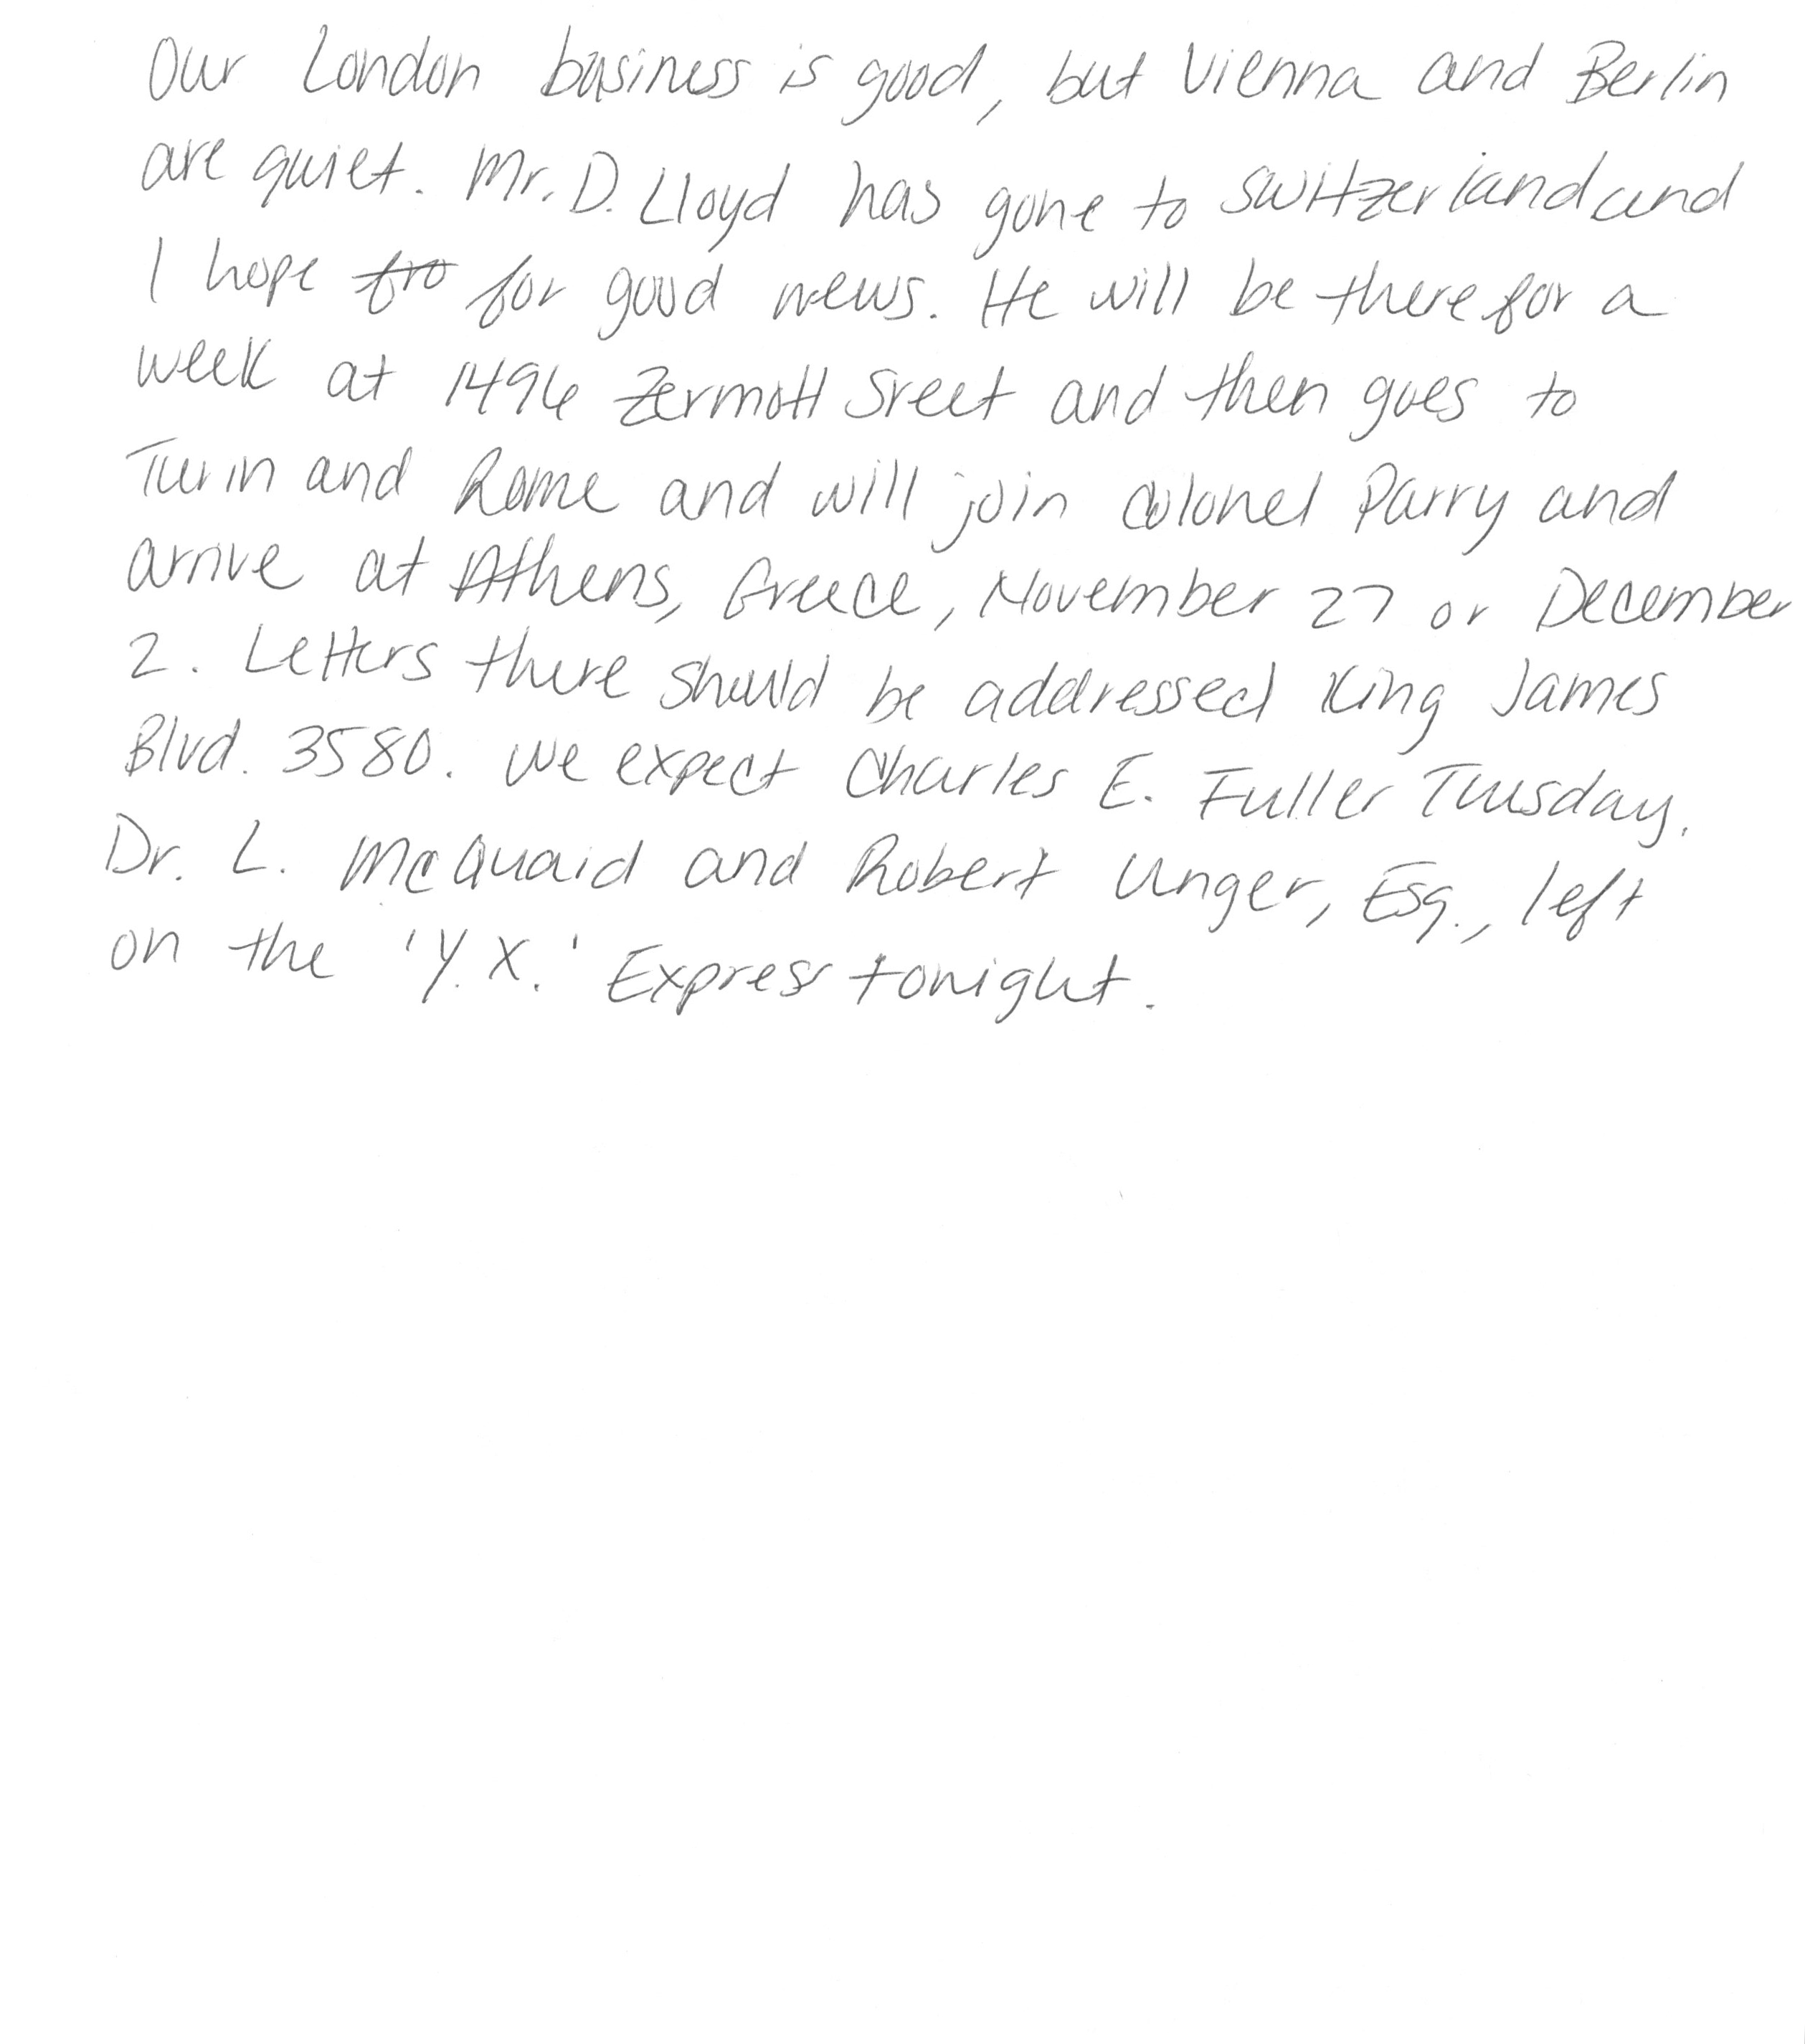 Our London business is good, but Vienna and Berlin
are quiet. Mr. D. Lloyd has gone to Switzerland and
I hope fro for good news. He will be there for a
week at 1496 Zermott Sreet and then goes to
Turin and Rome and will join Colonel Parry and
arrive at Athens, Greece, November 27 or December
2. Letters there should be addressed King James
Blvd. 3580. We expect Charles E. Fuller Tuesday.
Dr. L. McQuaid and Robert Unger, Esq., left
on the 'Y.X.' Express tonight.